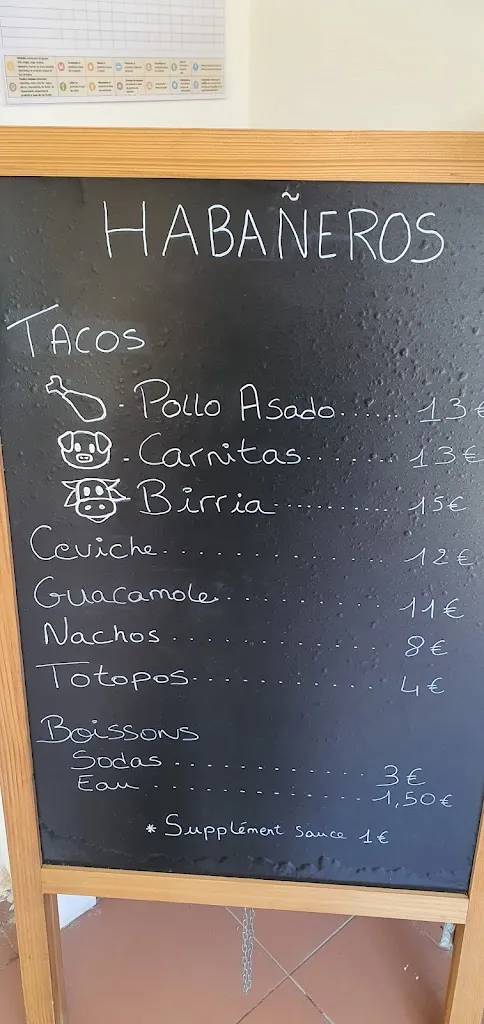 HABAÑEROS
TACOS
- Pollo Asado...... 13€
- Carnitas....... 13€
Birria............ 15€
Ceviche.............. 12€
Guacamole........... 11€
Nachos.............. 8€
Totopos............. 4€
Boissons
Sodas.............. 3€
Eau................ 1,50€
* Supplément sauce 1€